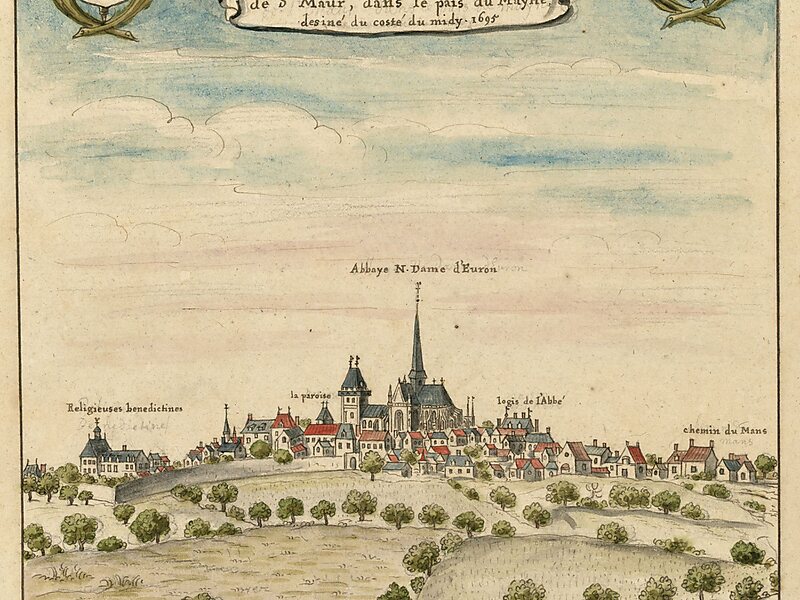 de S Maur, dans le païs du Mayne,
desiné du costé du midy. 1695
Abbaye N. Dame d'Euron
la paroise
logis de l'Abbé
Religieuses benedictines
chemin du Mans
mans